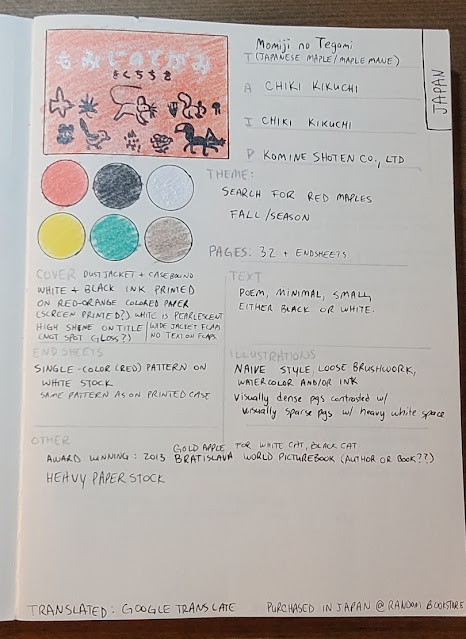 もみじのてがみ
きくちちき
Momiji no Tegami
T (JAPANESE MAPLE/MAPLE MANE)
A CHIKI KIKUCHI
I CHIKI KIKUCHI
P KOMINE SHOTEN CO., LTD
JAPAN
THEME:
SEARCH FOR RED MAPLES
FALL/SEASON
PAGES: 32 + ENDSHEETS
COVER DUSTJACKET + CASEBOUND
WHITE + BLACK INK PRINTED
ON RED-ORANGE COLORED PAPER
(SCREEN PRINTED?) WHITE IS PEARLESCENT
HIGH SHINE ON TITLE
(NOT SPOT GLOSS?)
WIDE JACKET FLAPS
NO TEXT ON FLAPS
TEXT
POEM, MINIMAL, SMALL,
EITHER BLACK OR WHITE.
ENDSHEETS
SINGLE-COLOR (RED) PATTERN ON
WHITE STOCK
SAME PATTERN AS ON PRINTED CASE
ILLUSTRATIONS
NAIVE STYLE, LOOSE BRUSHWORK,
WATERCOLOR AND/OR INK
Visually dense pgs contrasted w/
visually sparse pgs w/ heavy white space
OTHER
GOLD APPLE FOR WHITE CAT, BLACK CAT
AWARD WINNING: 2013 BRATISLAVA WORLD PICTUREBOOK (AUTHOR OR BOOK??)
HEAVY PAPER STOCK
TRANSLATED: GOOGLE TRANSLATE
PURCHASED IN JAPAN @ RANDOM BOOKSTORE